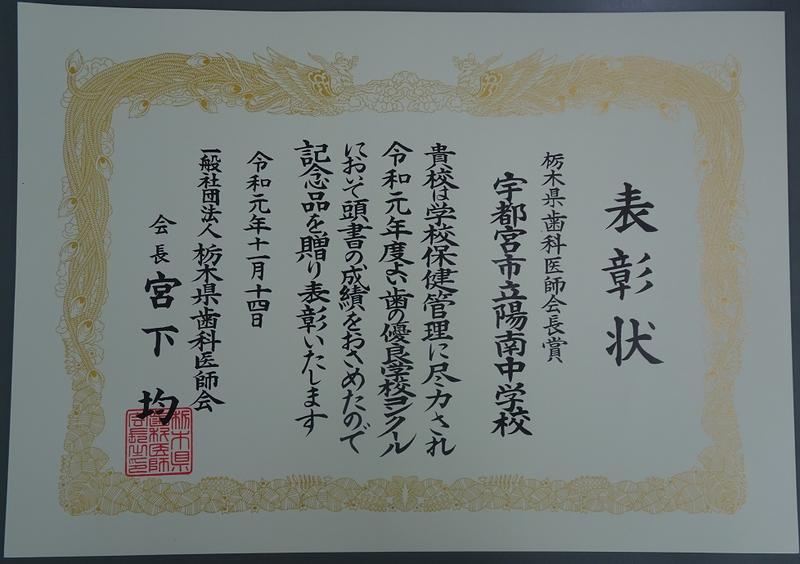 表彰状
栃木県歯科医師会長賞
宇都宮市立陽南中学校
貴校は学校保健管理に尽力され
令和元年度よい歯の優良学校コンクール
において頭書の成績をおさめたので
記念品を贈り表彰いたします
令和元年十一月十四日
一般社団法人 栃木県歯科医師会
会長 宮下 均
栃木県
歯科医師
会長之印